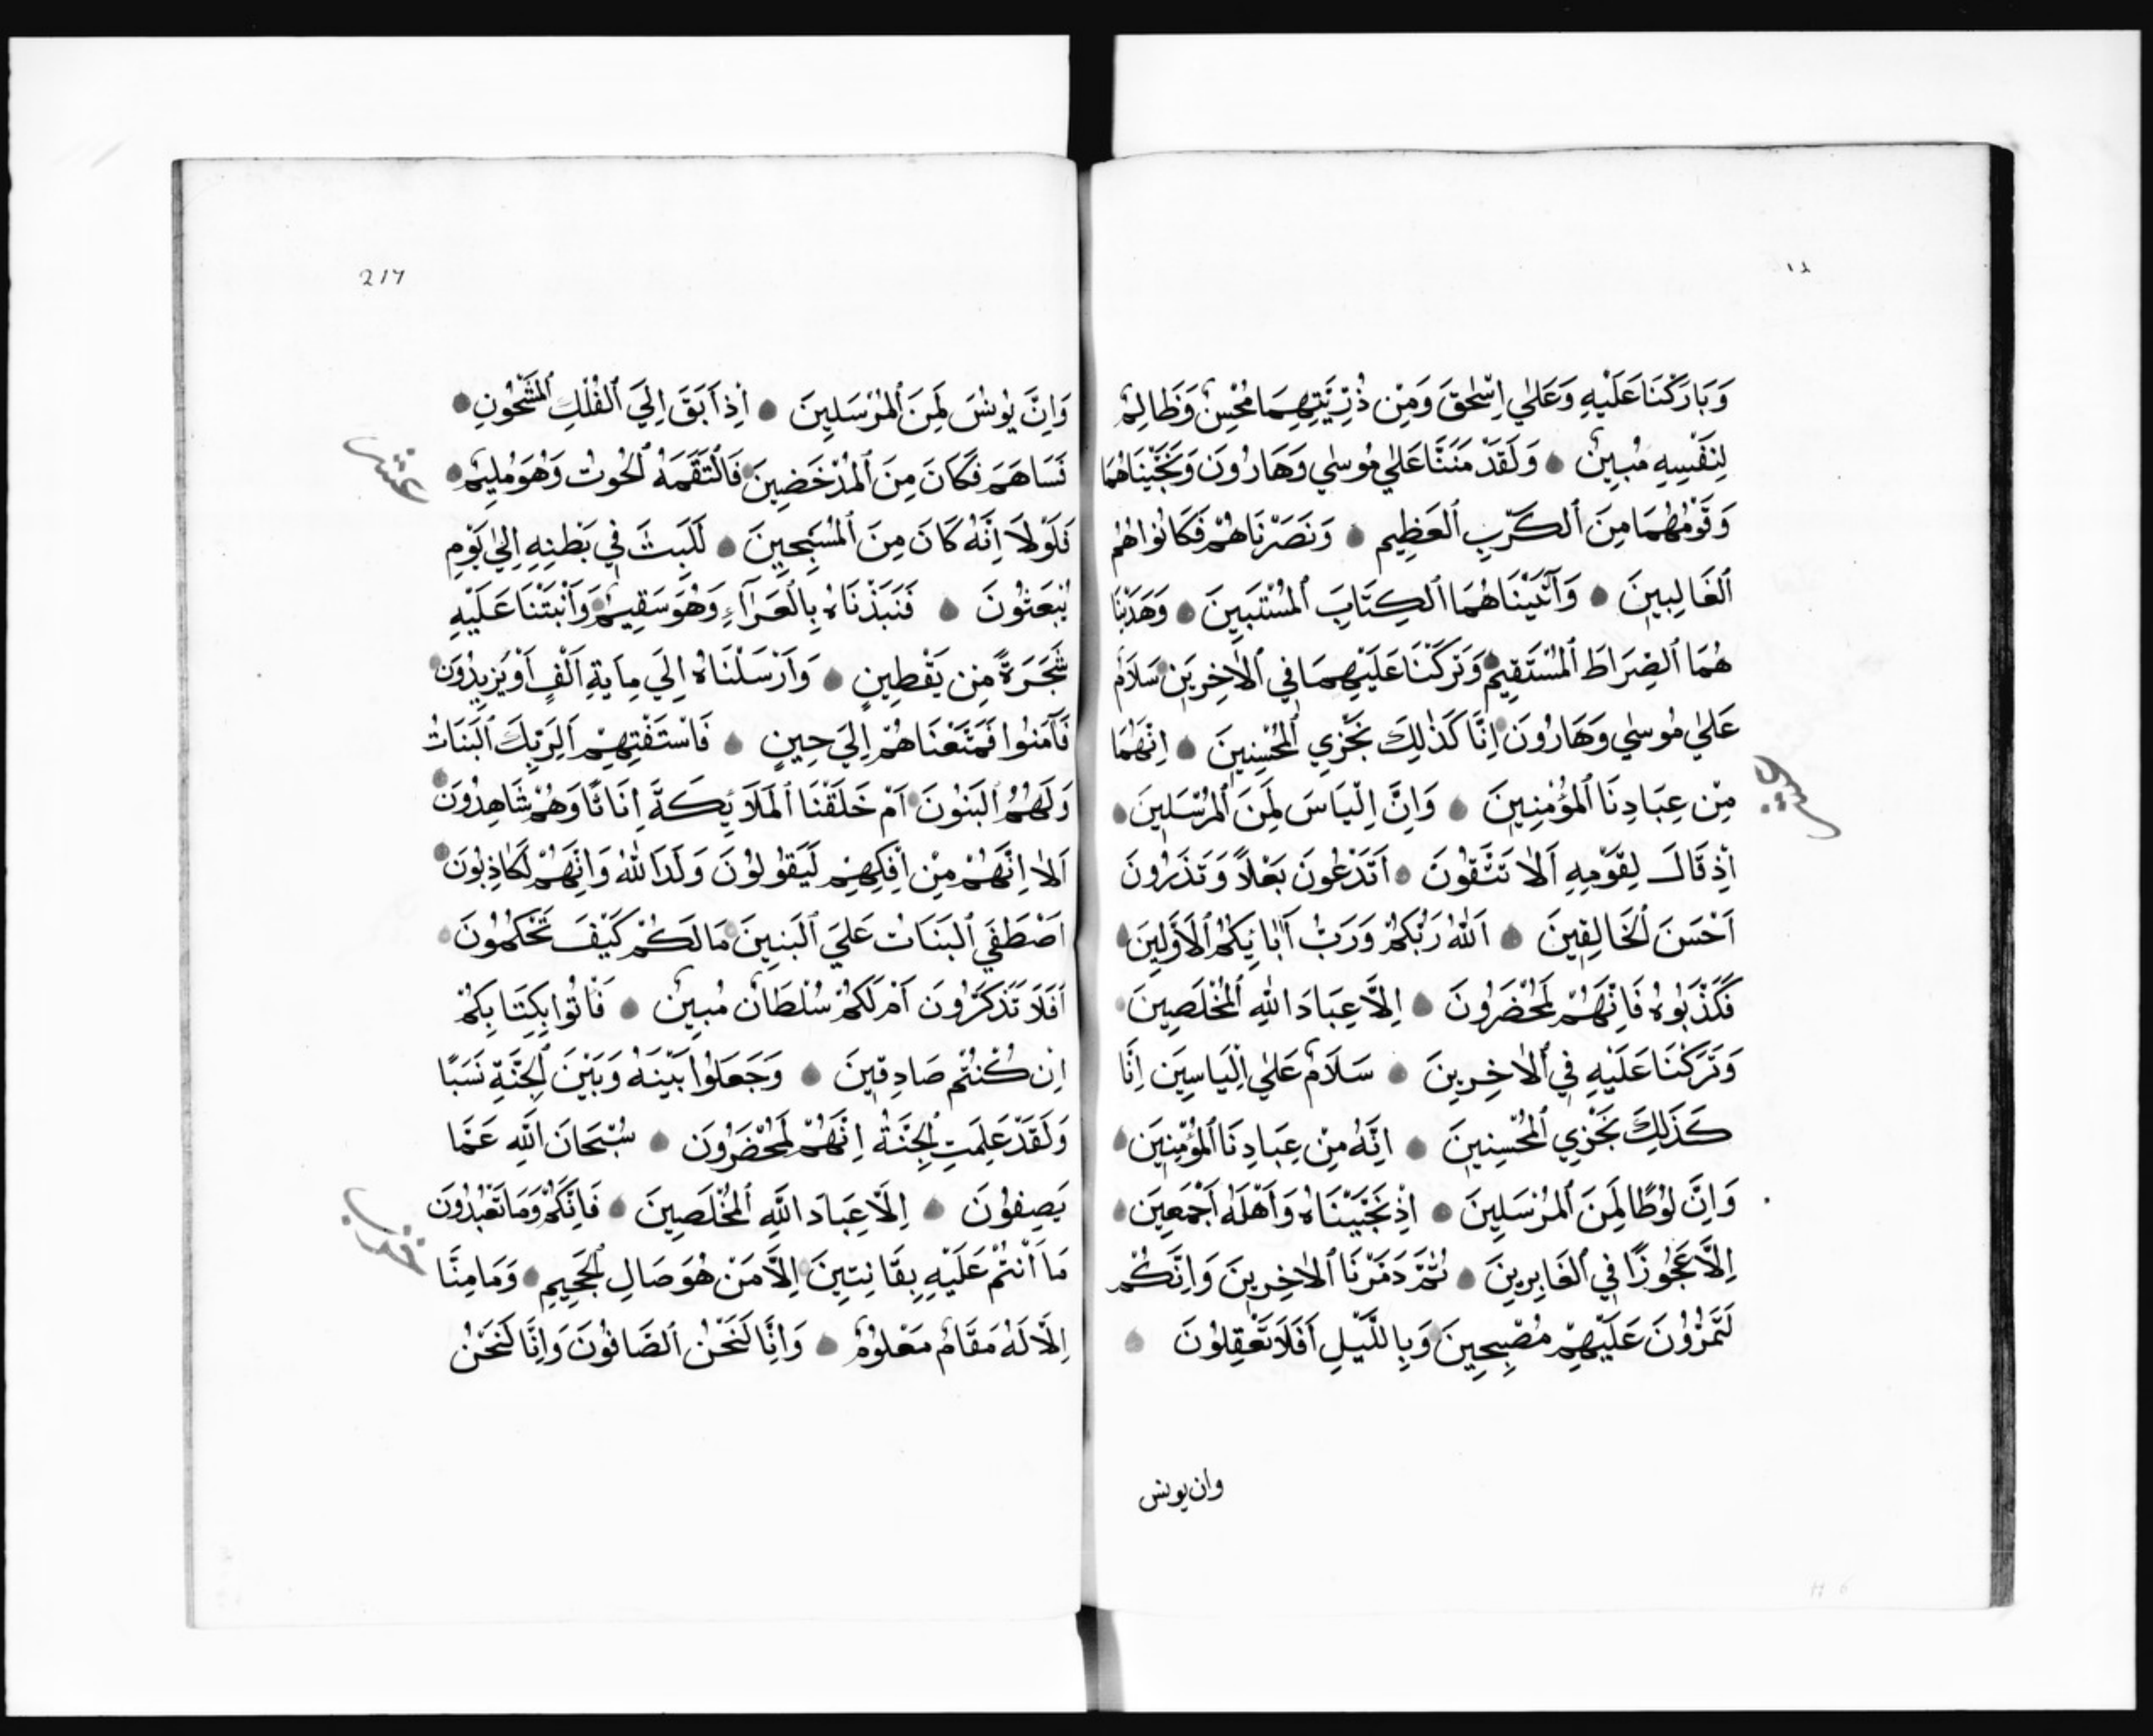 وَبَارَكْنَا عَلَيْهِ وَعَلٰي اِسْحٰقَ وَمِنْ ذُرِّيَّتِهِمَا مُحْسِنٌ وَظَالِمٌ
لِنَفْسِهِ مُبِينٌ وَلَقَدْ مَنَنَّا عَلٰي مُوسٰي وَهَارُونَ وَنَجَّيْنَاهُمَا
وَقَوْمَهُمَا مِنَ ٱلكَرْبِ ٱلعَظِيمِ وَنَصَرْنَاهُمْ فَكَانُوا هُمُ
ٱلغَالِبِينَ وَآتَيْنَاهُمَا ٱلكِتَابَ ٱلمُسْتَبِينَ وَهَدَيْنَا
هُمَا ٱلصِّرَاطَ ٱلمُسْتَقِيمَ وَتَرَكْنَا عَلَيْهِمَا فِي ٱلاٰخِرِينَ سَلَامٌ
عَلٰي مُوسٰي وَهَارُونَ اِنَّا كَذٰلِكَ نَجْزِي ٱلمُحْسِنِينَ اِنَّهُمَا
مِنْ عِبَادِنَا ٱلمُؤْمِنِينَ وَاِنَّ اِلْيَاسَ لَمِنَ ٱلمُرْسَلِينَ
عشر
اِذْ قَالَ لِقَوْمِهِ اَلَا تَتَّقُونَ اَتَدْعُونَ بَعْلًا وَتَذَرُونَ
اَحْسَنَ ٱلخَالِقِينَ اَللّٰهُ رَبُّكُمْ وَرَبُّ اٰبَائِكُمُ ٱلاَوَّلِينَ
فَكَذَّبُوهُ فَاِنَّهُمْ لَمُحْضَرُونَ اِلَّا عِبَادَ اللّٰهِ ٱلمُخْلَصِينَ
وَتَرَكْنَا عَلَيْهِ فِي ٱلاٰخِرِينَ سَلَامٌ عَلٰي اِلْيَاسِينَ اِنَّا
كَذٰلِكَ نَجْزِي ٱلمُحْسِنِينَ اِنَّهُ مِنْ عِبَادِنَا ٱلمُؤْمِنِينَ
وَاِنَّ لُوطًا لَمِنَ ٱلمُرْسَلِينَ اِذْ نَجَّيْنَاهُ وَاَهْلَهُ اَجْمَعِينَ
اِلَّا عَجُوزًا فِي ٱلغَابِرِينَ ثُمَّ دَمَّرْنَا ٱلاٰخِرِينَ وَاِنَّكُمْ
لَتَمُرُّونَ عَلَيْهِمْ مُصْبِحِينَ وَبِاللَّيْلِ اَفَلَا تَعْقِلُونَ
وان يونس
217
وَاِنَّ يُونُسَ لَمِنَ ٱلمُرْسَلِينَ اِذْ اَبَقَ اِلَي ٱلفُلْكِ ٱلمَشْحُونِ
فَسَاهَمَ فَكَانَ مِنَ ٱلمُدْحَضِينَ فَالْتَقَمَهُ ٱلحُوتُ وَهُوَ مُلِيمٌ
عشر
فَلَوْلَا اَنَّهُ كَانَ مِنَ ٱلمُسَبِّحِينَ لَلَبِثَ فِي بَطْنِهِ اِلٰي يَوْمِ
يُبْعَثُونَ فَنَبَذْنَاهُ بِالْعَرَآءِ وَهُوَ سَقِيمٌ وَاَنْبَتْنَا عَلَيْهِ
شَجَرَةً مِنْ يَقْطِينٍ وَاَرْسَلْنَاهُ اِلَي مِايَةِ اَلْفٍ اَوْ يَزِيدُونَ
فَآمَنُوا فَمَتَّعْنَاهُمْ اِلَي حِينٍ فَاسْتَفْتِهِمْ اَلِرَبِّكَ ٱلبَنَاتُ
وَلَهُمُ ٱلبَنُونَ اَمْ خَلَقْنَا ٱلمَلَائِكَةَ اِنَاثًا وَهُمْ شَاهِدُونَ
اَلَا اِنَّهُمْ مِنْ اِفْكِهِمْ لَيَقُولُونَ وَلَدَ اللّٰهُ وَاِنَّهُمْ لَكَاذِبُونَ
اَصْطَفَي ٱلبَنَاتِ عَلَي ٱلبَنِينَ مَا لَكُمْ كَيْفَ تَحْكُمُونَ
اَفَلَا تَذَكَّرُونَ اَمْ لَكُمْ سُلْطَانٌ مُبِينٌ فَاْتُوا بِكِتَابِكُمْ
اِنْ كُنْتُمْ صَادِقِينَ وَجَعَلُوا بَيْنَهُ وَبَيْنَ ٱلجِنَّةِ نَسَبًا
وَلَقَدْ عَلِمَتِ ٱلجِنَّةُ اِنَّهُمْ لَمُحْضَرُونَ سُبْحَانَ اللّٰهِ عَمَّا
يَصِفُونَ اِلَّا عِبَادَ اللّٰهِ ٱلمُخْلَصِينَ فَاِنَّكُمْ وَمَا تَعْبُدُونَ
مَا اَنْتُمْ عَلَيْهِ بِفَانِتِينَ اِلَّا مَنْ هُوَ صَالِ ٱلجَحِيمِ وَمَا مِنَّا
اِلَّا لَهُ مَقَامٌ مَعْلُومٌ وَاِنَّا لَنَحْنُ ٱلصَّافُّونَ وَاِنَّا لَنَحْنُ